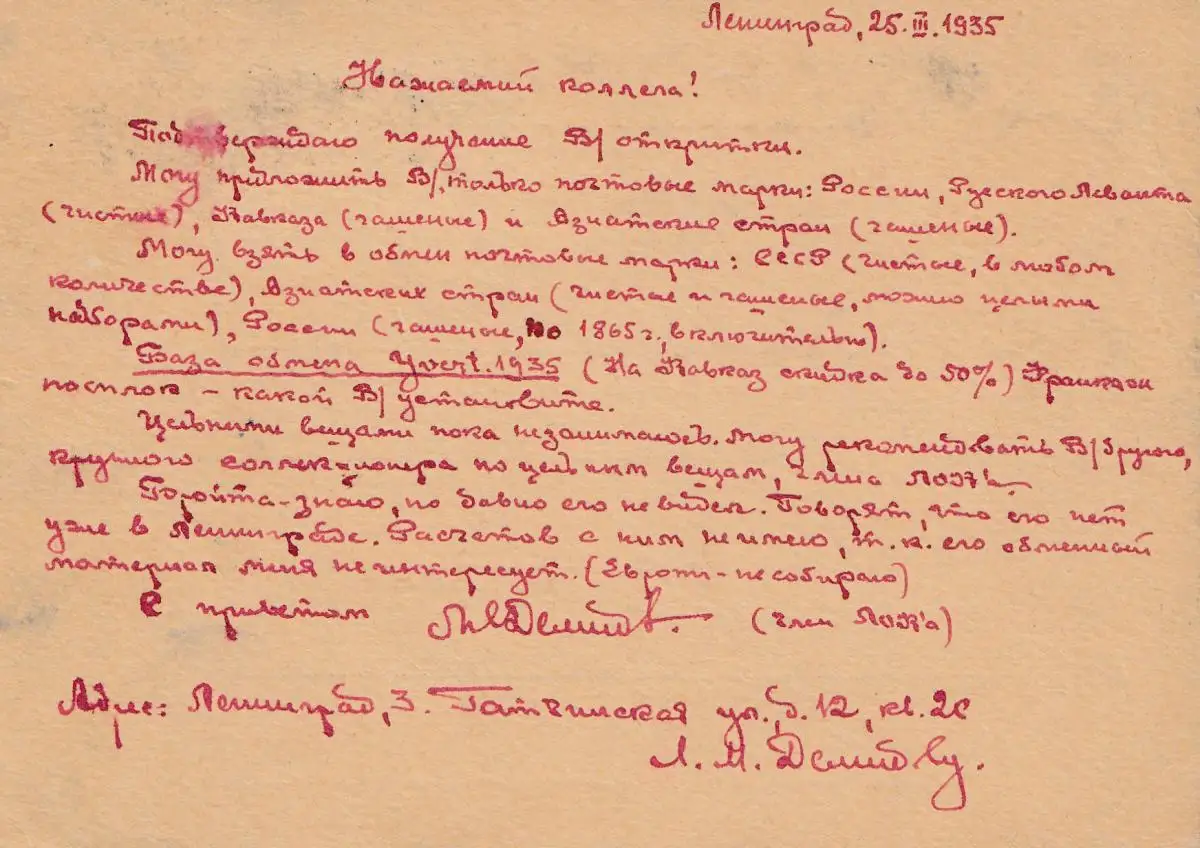 Ленинград, 25.III.1935
Уважаемый коллега!
Подтверждаю получение В/ открытки.
Могу предложить В/, только почтовые марки: России, Русского Леванта
(чистые), Кавказа (гашеные) и Азиатские стран (гашеные).
Могу взять в обмен почтовые марки: СССР (чистые, в любом
количестве), Азиатских стран (чистые и гашеные, можно целыми
наборами), России (гашеные, по 1865 г., включительно).
База обмена Yvert.1935 (На Кавказ скидка до 50%) Франкаж
посылок – какой В/ установите.
Цельными вещами пока незанимаюсь. Могу рекомендовать В/ другого,
крупного коллекционера по цельным вещам, члена
знаю, но давно его невидел. Говорят, что его нет
уже в Ленинграде. Расчетов с ним неимею, т.к. его обменный
материал меня неинтересует. (Европы – несобираю)
С приветом ЛМДемидов. (член)
Адрес: Ленинград, 3. Гатчинская ул., д.12, кв.26
Л. М. Демидову.